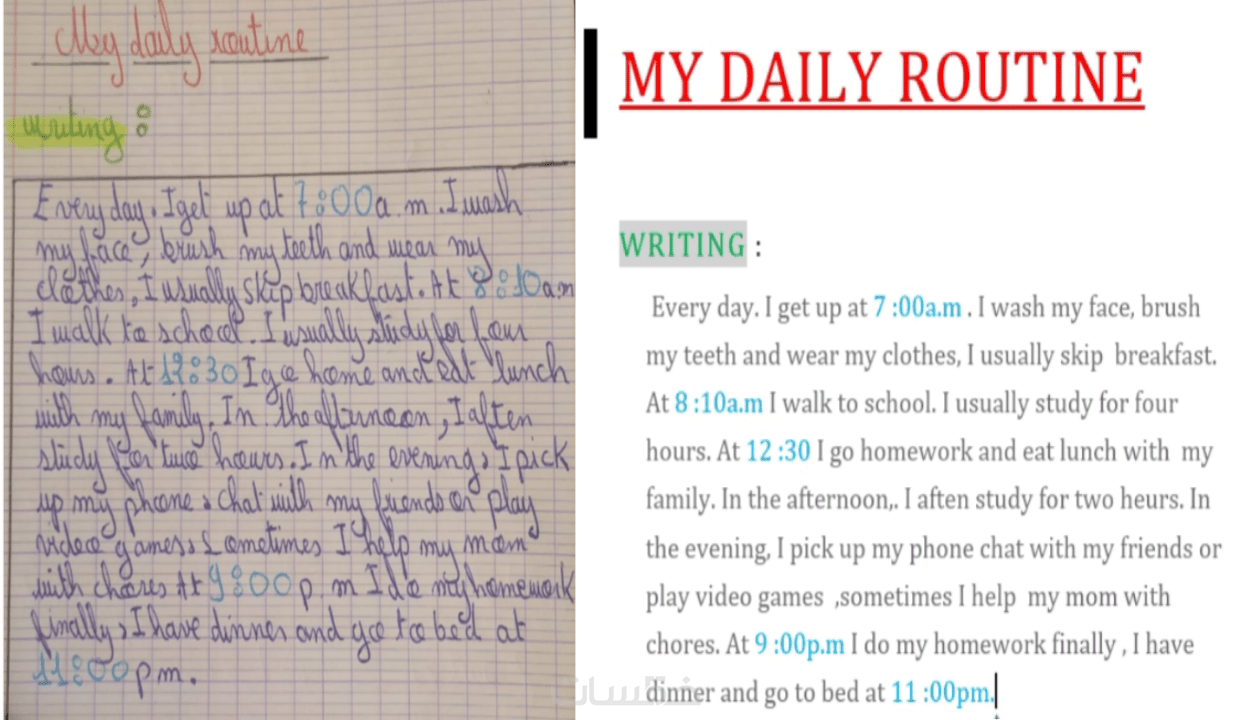 My daily routine
writing :
Every day. I get up at 7:00a.m. I wash
my face, brush my teeth and wear my
clothes, I usually skip breakfast. At 8:10a.m
I walk to school. I usually study for four
hours. At 12:30 I go home and eat lunch
with my family. In the afternoon, I aften
study for two hours. In the evening, I pick
up my phone, chat with my friends or play
video games, Sometimes I help my mom
with chores At 9:00 p.m I do my homework
finally, I have dinner and go to bed at
11:00 pm.
MY DAILY ROUTINE
WRITING :
Every day. I get up at 7 :00a.m . I wash my face, brush
my teeth and wear my clothes, I usually skip breakfast.
At 8 :10a.m I walk to school. I usually study for four
hours. At 12 :30 I go homework and eat lunch with my
family. In the afternoon,. I aften study for two heurs. In
the evening, I pick up my phone chat with my friends or
play video games ,sometimes I help my mom with
chores. At 9 :00p.m I do my homework finally , I have
dinner and go to bed at 11 :00pm.